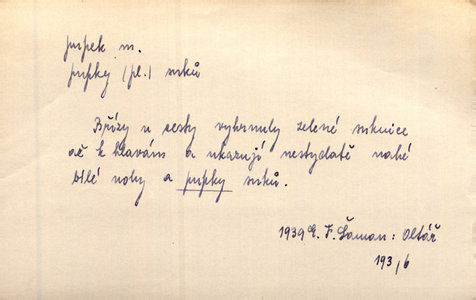 pupek m.
pupky (pl.) suků
Břízy u cesty vyhrnuly zelené suknice
až k hlavám a ukazují nestydatě nahé
bílé nohy a pupky suků.
1939 E. F. Šaman: Oltář
193/6